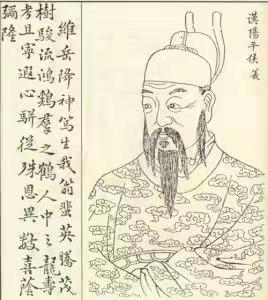 漢陽平侯
維岳降神寫生我翁蜚英騰茂
樹駿流鴻鷄羣之鶴人中之龍壽
考且寧遐心駢從殊恩異數喜蔭
彌隆